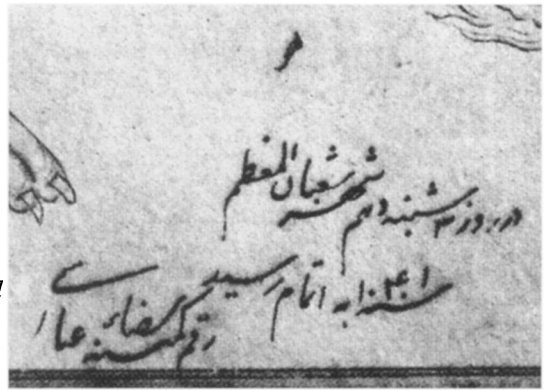 هو
در روز ۳ شنبه دهم شهر شعبان المعظم
سنه ۱۰۴۱ به اتمام رسید
رقم کمینه رضای عباسی